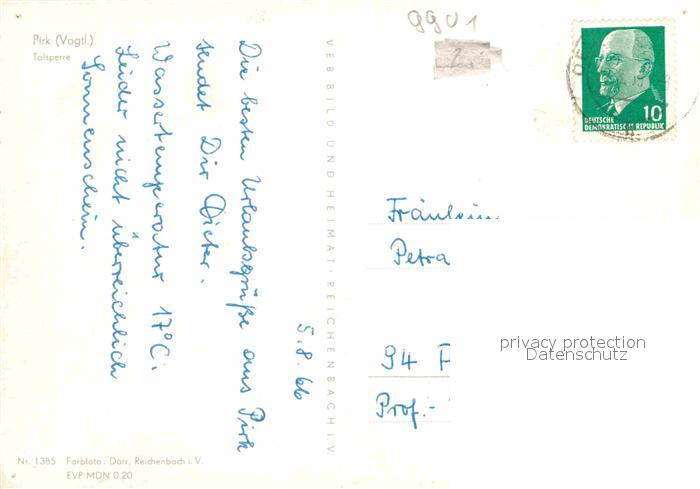 9901
2.
Pirk (Vogtl.)
Talsperre
5.8.66
Die besten Urlaubsgrüße aus Pirk
sendet Dir Dieter.
Wassertemperatur 17°C.
Leider nicht überreichlich
Sonnenschein.
VEB BILD UND HEIMAT · REICHENBACH i. V.
10
DEUTSCHE
DEMOKRATISCHE REPUBLIK
Fräulein
Petra
94
Prof.-
privacy protection
Datenschutz
Nr. 1385 Farbfoto: Darr, Reichenbach i. V.
EVP MDN 0.20